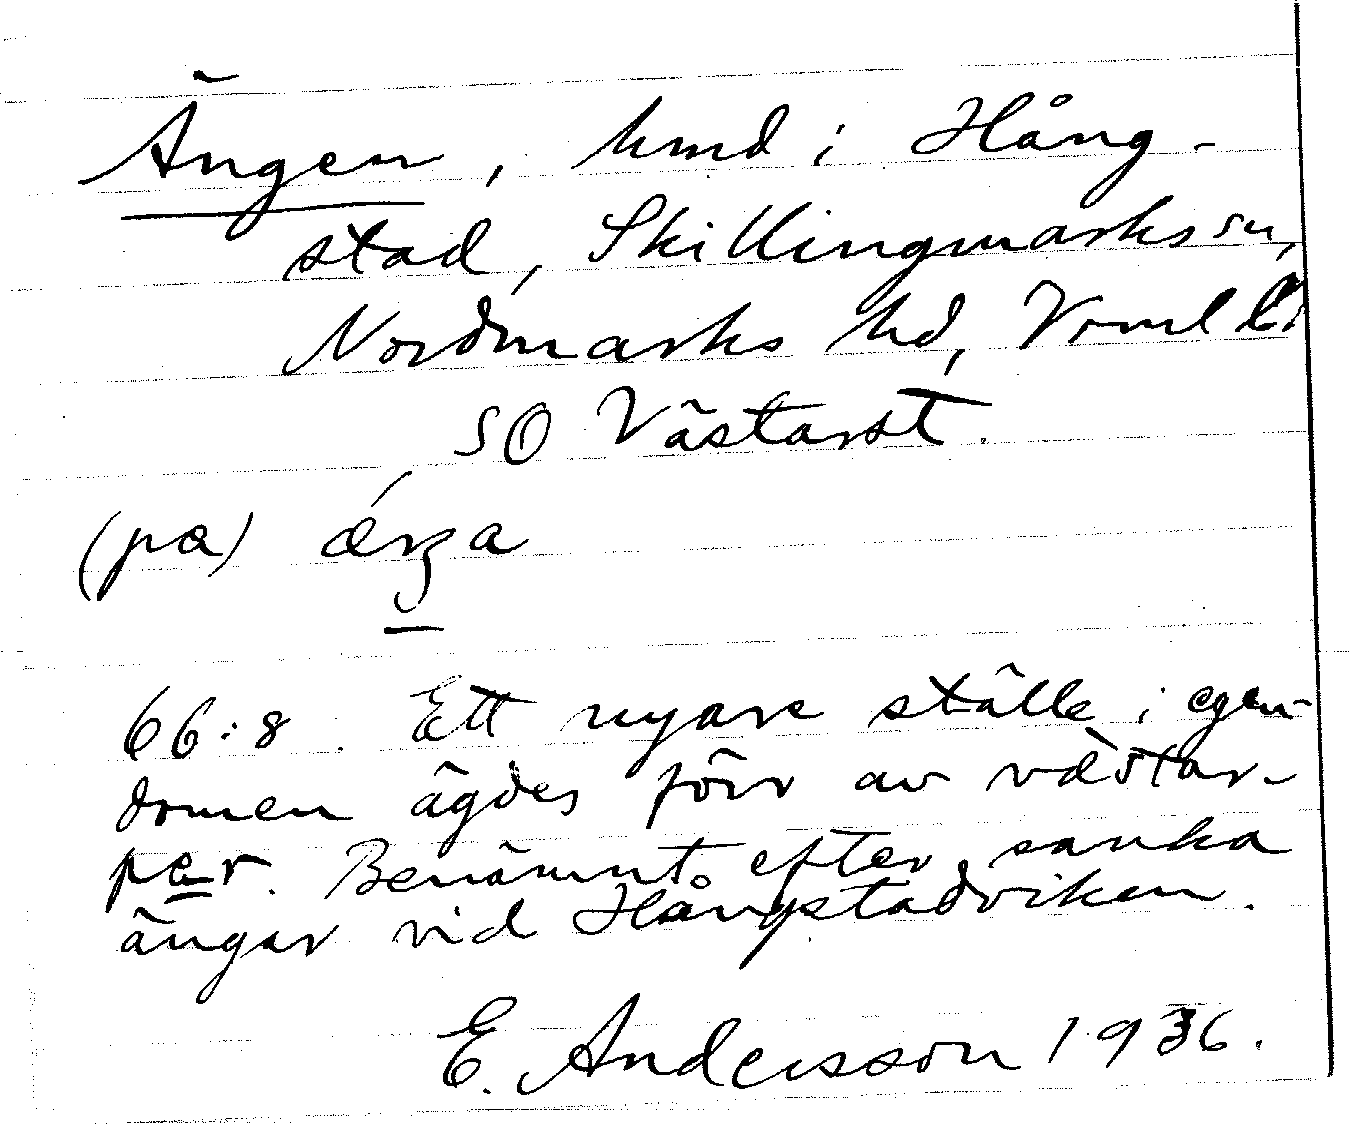 Ängen, hmd i Hång-
stad, Skillingmarks sn,
Nordmarks hd, Vrml l.
SO Västarst.
(pa) ǽŋa
66:8. Ett nyare ställe i egen-
domen ägdes förr av västar-
per. Benämnt efter sanka
ängar vid Hångstadviken.
E. Andersson 1936.